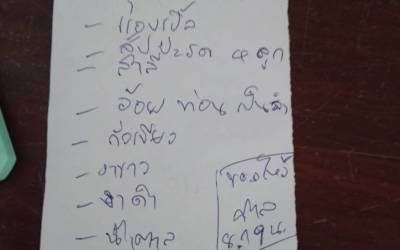 - แอปเปิ้ล
- สับปะรด ๔ ลูก
- อ้อย ท่อน เป็นลำ
- ถั่วเขียว
- งาขาว
- งาดำ
- น้ำตาล
ของไหว้
ศาล